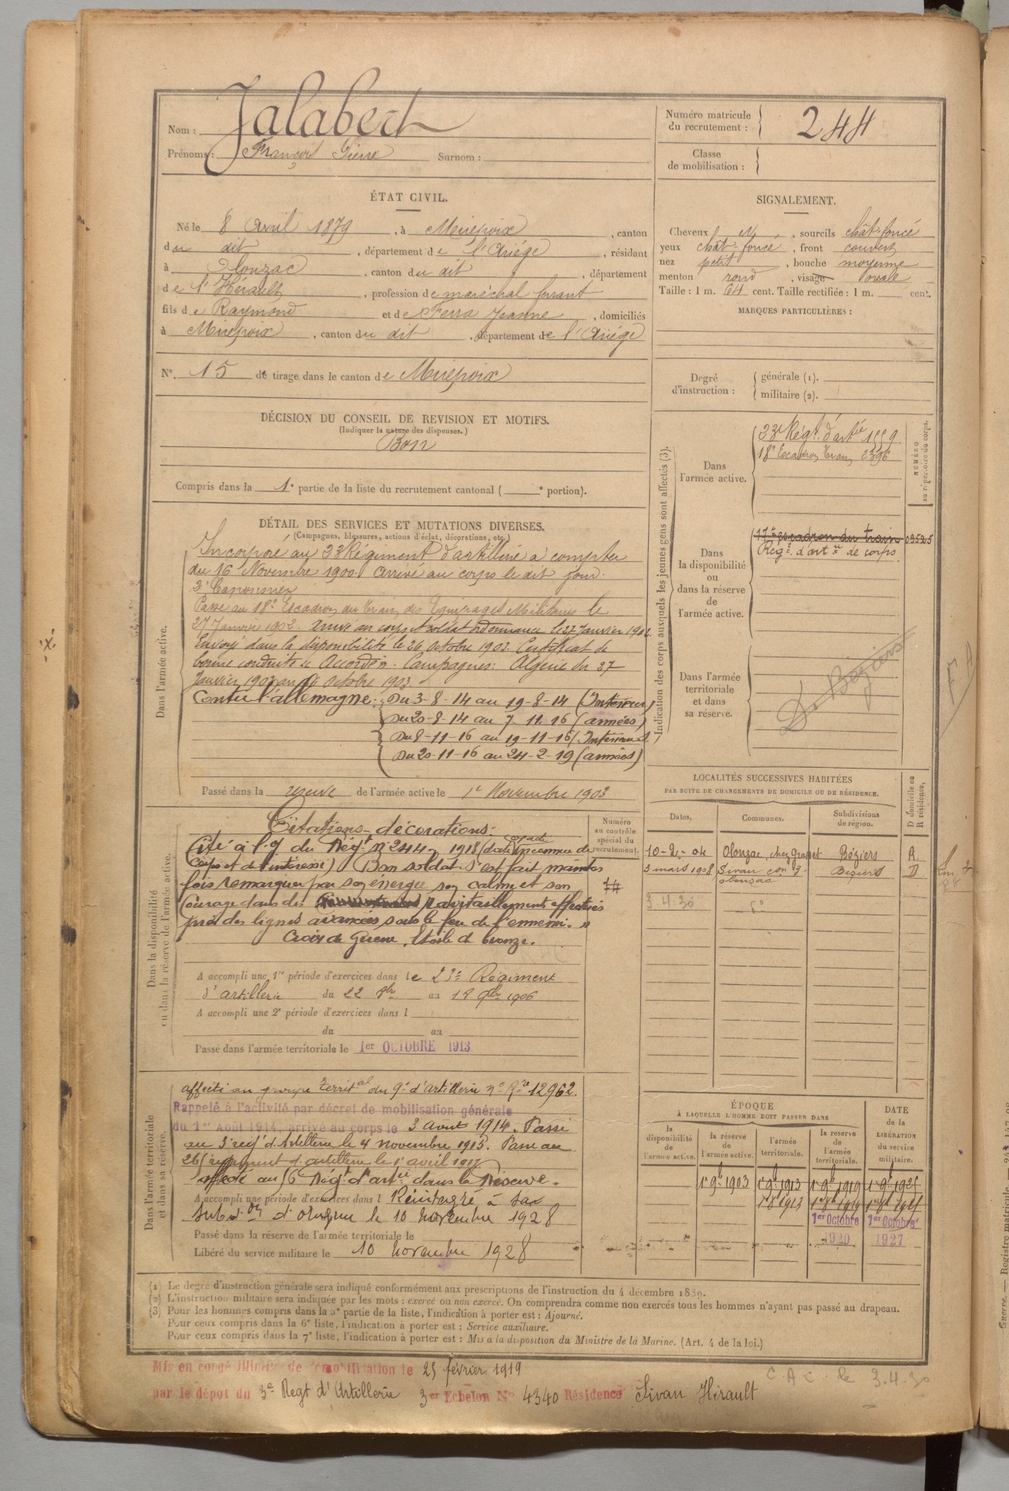 Nom : Jalabert
Prénoms : François Pierre Surnom :
Numéro matricule du recrutement : 244
Classe de mobilisation :
ÉTAT CIVIL.
Né le 8 Avril 1879, à Mirepoix, canton
du dit, département de l'Ariége, résidant
à Olonzac, canton du dit, département
de l'Hérault, profession de maréchal ferrant
fils de Raymond et de Ferra Jeanne, domiciliés
à Mirepoix, canton du dit, département de l'Ariége
N° 15 de tirage dans le canton de Mirepoix
SIGNALEMENT.
Cheveux , sourcils chât-foncé
yeux chât-foncé, front couvert
nez petit, bouche moyenne
menton rond, visage ovale
Taille : 1 m. 64 cent. Taille rectifiée : 1 m. cent.
MARQUES PARTICULIÈRES :
Degré d'instruction : générale (1).
militaire (2).
DÉCISION DU CONSEIL DE REVISION ET MOTIFS.
(Indiquer la nature des dispenses.)
Bon
Compris dans la 1e partie de la liste du recrutement cantonal ( e portion).
DÉTAIL DES SERVICES ET MUTATIONS DIVERSES.
(Campagnes, blessures, actions d'éclat, décorations, etc.)
Dans l'armée active.
Incorporé au 23 Régiment d'artillerie à compter
du 16 Novembre 1900. Arrivé au corps le dit jour.
2e Canonnier
Passé au 18e Escadron du Train des Equipages Militaires le
27 Janvier 1902. Arrivé au corps et soldat ordonnance le 27 Janvier 1902
Envoyé dans la disponibilité le 20 Octobre 1903. Certificat de
bonne conduite "Accordé". Campagnes: Algérie du 27
Janvier 1902 au Octobre 1903
Contre l'allemagne: Du 3-8-14 au 19-8-14 (Intérieur)
Du 20-8-14 au 7-11-16 (armées)
Du 8-11-16 au 19-11-16 (Intérieur)
Du 20-11-16 au 24-2-19 (armées)
Passé dans la réserve de l'armée active le 1er Novembre 1903
Indication des corps auxquels les jeunes gens sont affectés (3).
NUMÉRO au répertoire du corps.
Dans l'armée active.
23e Régt d'artie 1559
18e Escadron Train 2396
Dans la disponibilité ou dans la réserve de l'armée active.
17e escadron du train 03525
Régt d'artie de corps
Dans l'armée territoriale et dans sa réserve.
D. Béziers
LOCALITÉS SUCCESSIVES HABITÉES
PAR SUITE DE CHANGEMENTS DE DOMICILE OU DE RÉSIDENCE.
Dates. Communes. Subdivisions de région. D domicile ou R résidence.
10-2-04 Olonzac, chez Béziers R.
3 mars 1908 Siran con d' olonzac Béziers D
3.4.30
Dans la disponibilité ou dans la réserve de l'armée active.
Numéro au contrôle spécial du recrutement.
Citations-décorations:
Cité à l'o du Régt n° 244 1918
Bon soldat s'est fait maintes
fois remarquer par son énergie son calme et son
courage dans des ravitaillements effectués
près des lignes avancées sous le feu de l'ennemi. »
Croix de Guerre, Etoile de bronze.
A accompli une 1re période d'exercices dans le 23e Régiment
d'artillerie du 22 8bre au 18 9bre 1906
A accompli une 2e période d'exercices dans l
du au
Passé dans l'armée territoriale le 1er OCTOBRE 1913
Dans l'armée territoriale et dans sa réserve.
affecté au groupe territal du 9e d'artillerie n° Rre 12962.
Rappelé à l'activité par décret de mobilisation générale
du 1er Août 1914, arrivé au corps le 3 août 1914. Passé
au 3e régt d'Artillerie le 4 novembre 1915. Passé au
régiment d'artillerie le 1er avril 1917
affecté au Régt d'artie dans la Réserve.
A accompli une période d'exercices dans l Réintégré à sa
Subd.on d'origine le 10 novembre 1928
Passé dans la réserve de l'armée territoriale le
Libéré du service militaire le 10 novembre 1928
ÉPOQUE
À LAQUELLE L'HOMME DOIT PASSER DANS
DATE de la LIBÉRATION du service militaire.
la disponibilité de l'armée active. la réserve de l'armée active. l'armée territoriale. la réserve de l'armée territoriale.
1er 9b 1903 1er 9b 1913 1er 9b 1919 1er 9b 1925
1er 8b 1913
1er Octobre 1920 1er Octobre 1927
(1) Le degré d'instruction générale sera indiqué conformément aux prescriptions de l'instruction du 4 décembre 1889.
(2) L'instruction militaire sera indiquée par les mots : exercé ou non exercé. On comprendra comme non exercés tous les hommes n'ayant pas passé au drapeau.
(3) Pour les hommes compris dans la 2e partie de la liste, l'indication à porter est : Ajourné.
Pour ceux compris dans la 6e liste, l'indication à porter est : Service auxiliaire.
Pour ceux compris dans la 7e liste, l'indication à porter est : Mis à la disposition du Ministre de la Marine. (Art. 4 de la loi.)
Mis en congé illimité de démobilisation le 25 février 1919
par le dépôt du 3e Regt d'Artillerie 3er Echelon N° 4340 Résidence Siran Hérault
C.A.C. le 3.4.30